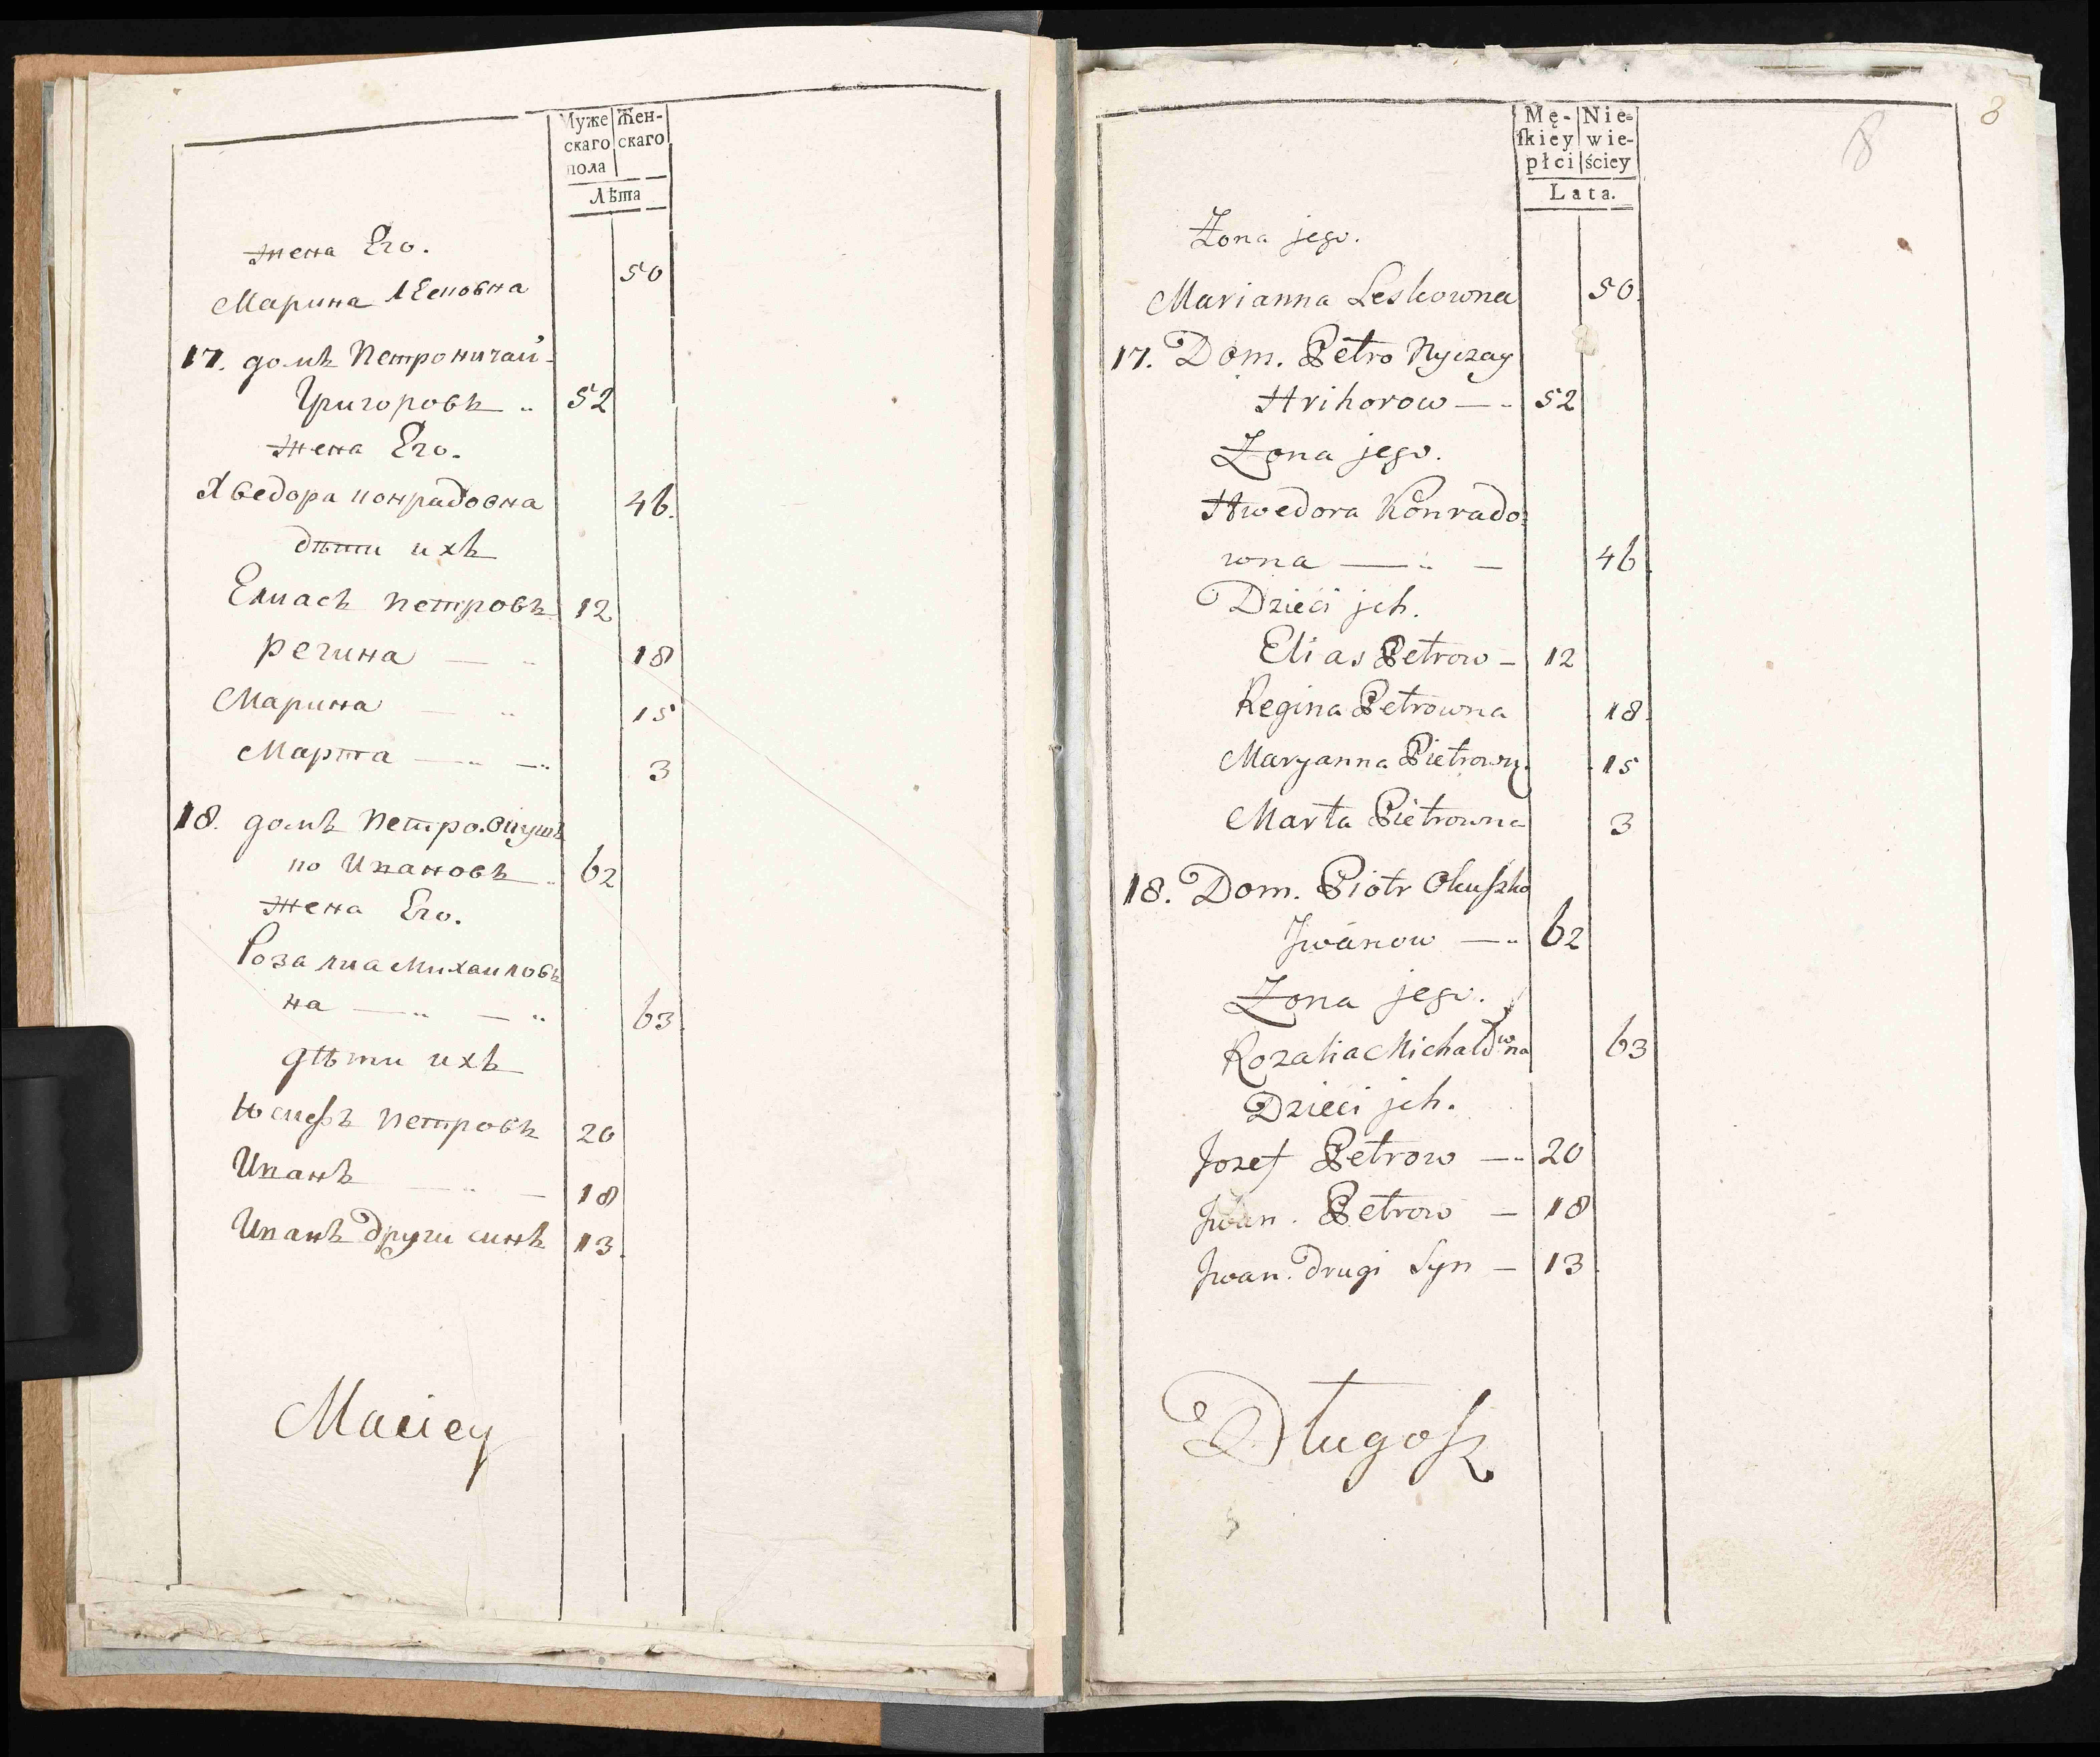 Муже Жен-
скаго скаго
пола
Лѣта
жена Его.
Марина лесковна 50
17. домъ петро ничай
Григоровъ 52
жена Его.
Хведора конрадовна 46.
дѣти ихъ
Елиасъ петровъ 12
регина — 18
Марина — 15
Марта — — 3
18. домъ петро. Окуш
ко Ивановъ 62
жена Его.
Розалиа Михаиловъ
на — — 63.
дѣти ихъ
Юсиѳъ петровъ 20
Иванъ — — 18
Иванъ други синъ 13.
Maciey
Mę- Nie=
ſkiey wie-
płci ściey
Lata.
8
8
Żona jego.
Marianna Leskowna 50.
17. Dom. Petro Nyczay
Hrihorow — 52
Żona jego.
Hwedora Konrado=
wna — — 46
Dzieci jch.
Elias Petrow — 12
Regina Petrowna 18.
Maryanna Pietrown. 15
Marta Pietrowna 3
18. Dom. Piotr Okuſzko
Jwanow — 62
Żona jego.
Rozalia Michałowna 63
Dzieci jch.
Jozef Petrow — 20
Jwan. Petrow — 18
Jwan. drugi Syn — 13.
Długoſz